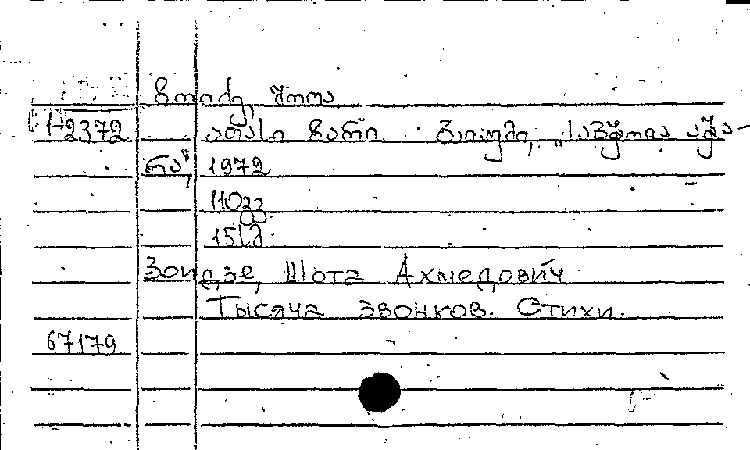 ზოიძე, შოთა
1-2372 ათასი ზარი. ბათუმი, „საბჭოთა აჭა-
რა", 1972
110გვ
15ს.მ.
Зоидзе, Шота Ахмедович
Тысяча звонков. Стихи.
67179